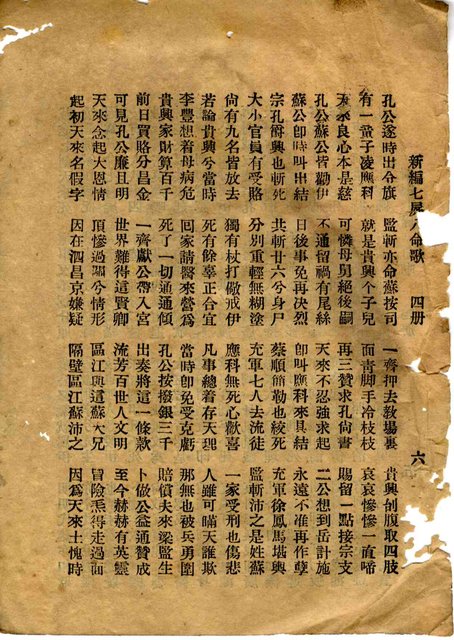 新編七屍八命歌 四册 六
孔公遂時出令旗 監斬亦命蘇按司 一齊押去教場裏 貴興剖腹取四肢
有一童子凌應科 就是貴興个子兒 面青脚手冷枝枝 哀哀慘慘一直啼
天來良心本是慈 可憐母舅絕後嗣 再三贊求孔尙書 賜留一點接宗支
孔公蘇公皆勸伊 不通留禍有尾絲 天來不忍強求起 二公想到岳計施
蘇公卽時叫出結 日後事免再决烈 卽叫應科來具結 永遠不准再作孽
宗孔爵興也斬死 共斬廿六兮身尸 蔡順簡勒也絞死 充軍徐鳳馬堪興
大小官員有受賂 分別重輕無糊塗 充軍七人去流徒 監斬沛之是姓蘇
尙有九名皆放去 獨有杖打儆戒伊 應科無死心歡喜 一家受刑也傷悲
若論貴興兮當時 死有餘辜正合宜 凡事總着存天理 人雖可瞞天誰欺
李豐想着母病危 囘家請醫來營爲 當時卽免受克虧 那無也被兵勇圍
貴興家財算百千 死了一切通通傾 孔公按撥銀三千 賠償天來梁監生
前日買賂分昌金 一齊獻公帶入宮 出奏將這一條款 卜做公益通贊成
可見孔公廉且明 世界難得這賢卿 流芳百世人文明 至今赫赫有英靈
天來念起大恩情 頂慘過關兮情形 區江與這蘇大兄 冒險得走過面
起初天來名假字 因在泗昌京嫌疑 隔壁區江蘇沛之 因爲天來土愧時